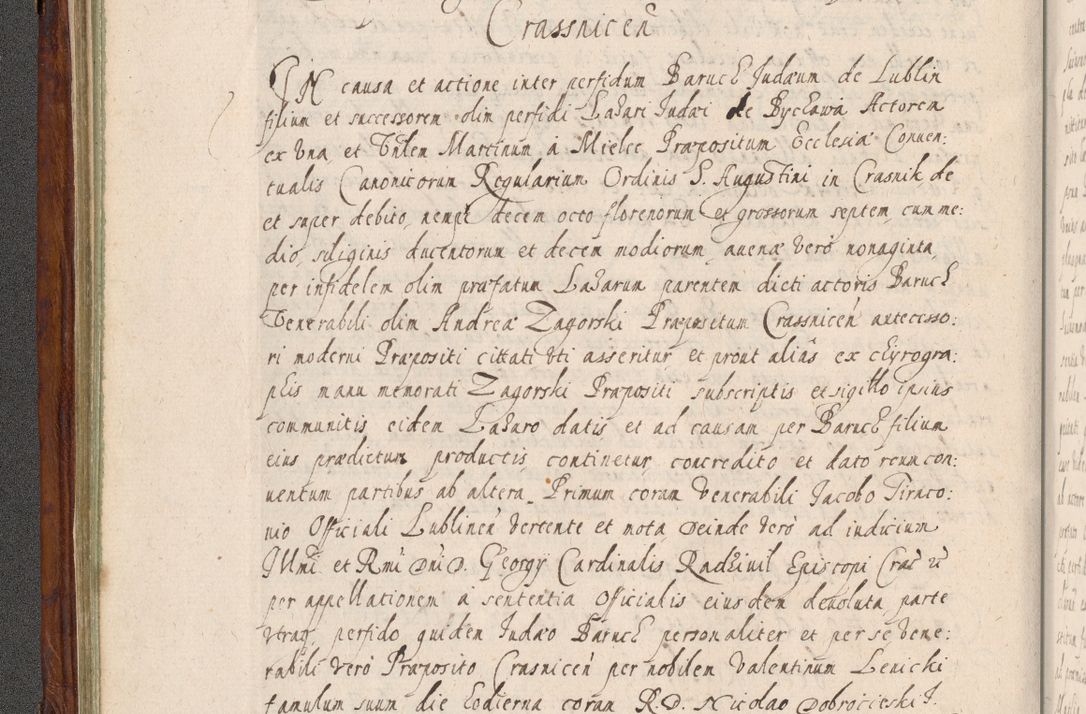 Crassnicen̄
IN causa et actione inter perfidum Baruch Iudæum de Lublin
filium et successorem olim perfidi Lazari Iudæi de Bycżawa Actorem
ex Vna, et Vnlem Martinum à Mielec Præpositum Ecclesiæ Conuen:
tualis Canonicorum Regularium Ordinis S. Augustini in Crasnik, de
et super debito, nempe decem octo florenorum et grossorum septem, cum me:
dio, siliginis ducentorum et decem modiorum, auenæ verò nonaginta,
per infidelem olim præfatum Lazarum parentem dicti actoris Baruch
Venerabili olim Andreæ Zagorski Præpositum Crassnicen̄ antecesso:
ri moderni Præpositi cittati vti asseritur et prout aliâs ex chyrogra:
phis manu memorati Zagorski Præpositi subscriptis et sigillo ipsius
communitis eidem Lazaro datis et ad causam per Baruch filium
eius prædictum productis, continetur concredito et dato reum con:
uentum partibus ab altera. Primum coram Venerabili Iacobo Tiraco:
nio Officiali Lublinen̄ vertente et mota, deinde verò ad iudicium
Illmi et Rmi Dni D. Georgÿ Cardinalis Radziwil Episcopi Crac̄
per appellationem a sententia Officialis eiusdem deuoluta, parte
vtraq, perfido quidem Iudæo Baruch personaliter et per se vene:
rabili verò Præposito Crasnicen̄ per nobilem Valentinum Lenicki
famulum suum die hodierna coram R.D. Nicolao Dobrocieski I.